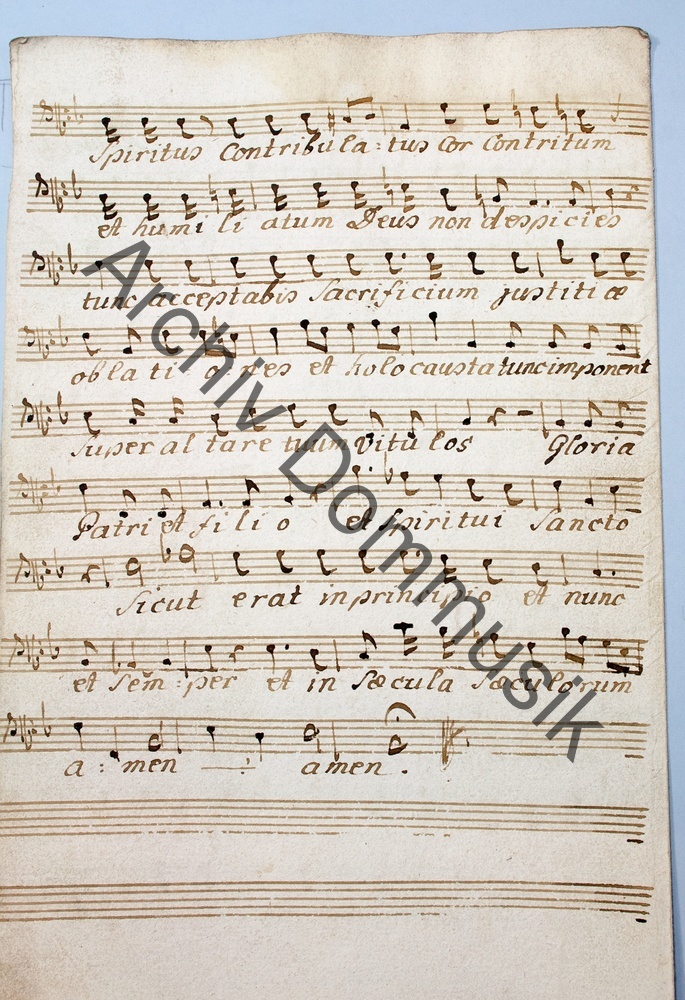 Spiritus Contribula: tus Cor Contritum
et humi li atum Deus non despicies
tunc acceptabis Sacrificium justitiæ
oblati o nes et holocausta tunc imponent
Super al tare tuum vitu los Gloria
Patri et filio et Spiritui Sancto
Sicut erat in principio et nunc
et Sem: per et in Sæcula Sæculorum
a: men —: amen.
Archiv Dommusik